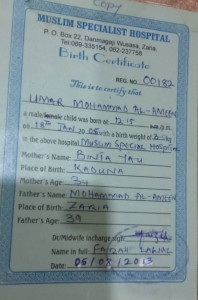 Copy
MUSLIM SPECIALIST HOSPITAL
P. O. Box 22, Danmagaji Wusasa, Zaria
Tel 069-335154, 062-237758
Birth Certificate
REG. NO. 00182
This is to certify that
UMAR MOHAMMAD AL-AMEEN
a male/female child was born at 12:15
on 18th JAN, 2005 with a birth weight of
in the above hospital MUSLIM SPECIAL HOSPITAL
Mother's Name: BINTA YA'U
Place of Birth: KADUNA
Mother's Age: 34
Father's Name: MOHAMMAD AL-AMEEN
Place of Birth: ZARIA
Father's Age: 39
Dr/Midwife incharge sign
Name in full:
Date: 05/08/2013